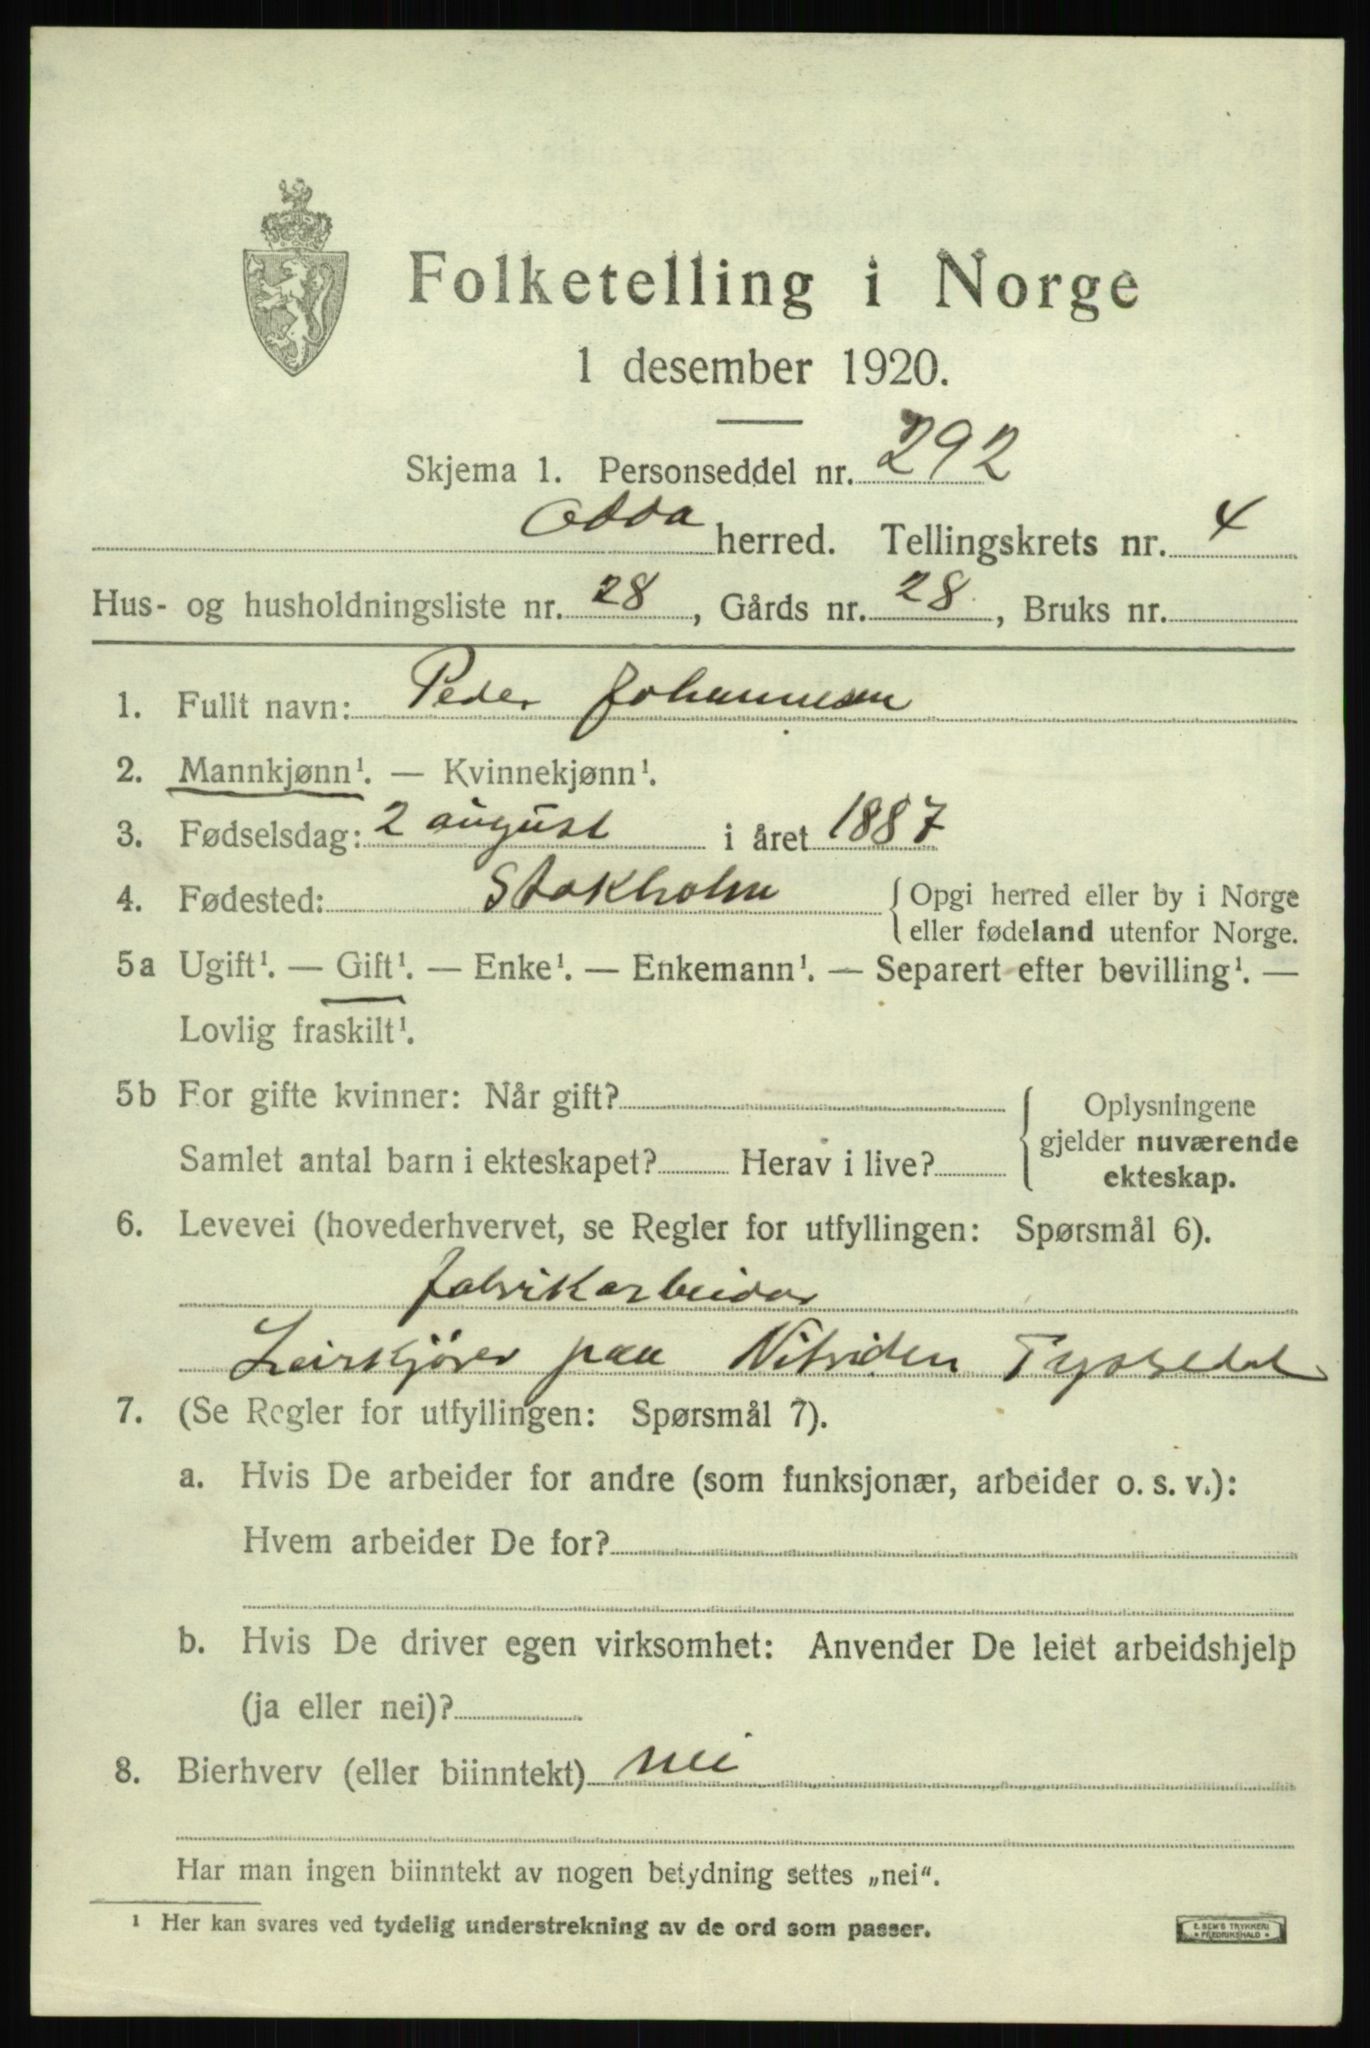 Folketelling i Norge
1 desember 1920.
Skjema 1. Personseddel nr. 292
Odda herred. Tellingskrets nr. 4
Hus- og husholdningsliste nr. 28, Gårds nr. 28, Bruks nr.
1. Fullt navn: Peder Johannesen
2. Mannkjønn¹. — Kvinnekjønn¹.
3. Fødselsdag: 2 august i året 1887
4. Fødested: Stokholm { Opgi herred eller by i Norge
eller fødeland utenfor Norge.
5a Ugift¹. — Gift¹. — Enke¹. — Enkemann¹. — Separert efter bevilling¹. —
Lovlig fraskilt¹.
5b For gifte kvinner: Når gift? { Oplysningene
gjelder nuværende
Samlet antal barn i ekteskapet? Herav i live?
ekteskap.
6. Levevei (hovederhvervet, se Regler for utfyllingen: Spørsmål 6).
fabrikarbeider
paa Nitriden Tyssedal
7. (Se Regler for utfyllingen: Spørsmål 7).
a. Hvis De arbeider for andre (som funksjonær, arbeider o. s. v.):
Hvem arbeider De for?
b. Hvis De driver egen virksomhet: Anvender De leiet arbeidshjelp
(ja eller nei)?
8. Bierhverv (eller biinntekt) nei
Har man ingen biinntekt av nogen betydning settes „nei“.
¹ Her kan svares ved tydelig understrekning av de ord som passer.
E. SEM'S TRYKKERI
* FREDRIKSHALD *